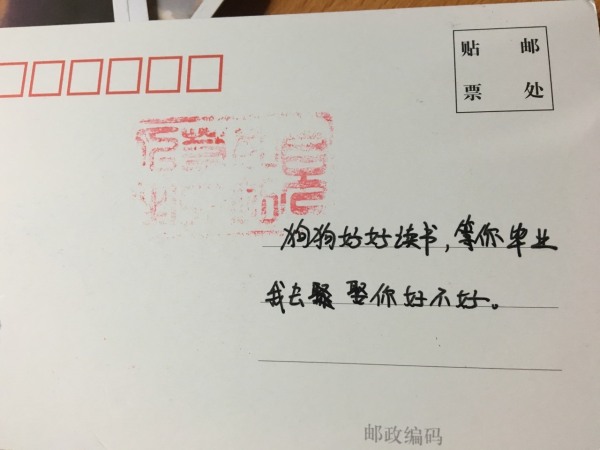 贴 邮
票 处
狗狗好好读书,等你毕业
我去娶你好不好。
邮政编码